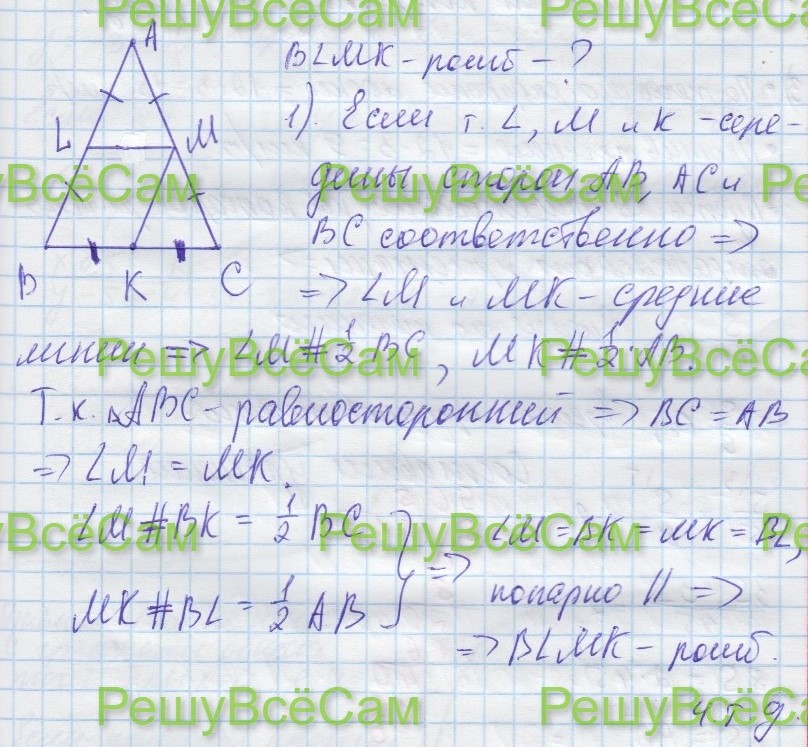 РешуВсёСам РешуВсёСам
A
BLMK - ромб - ?
1). Если т. L, M и K - сере-
L M
дины сторон AB, AC и
РешуВсёСам РешуВсёСам
BC соответственно =>
B K C
=> LM и MK - средние
линии => LM # 1/2 BC, MK # 1/2 · AB.
РешуВсёСам РешуВсёСам
Т.к. △ABC - равносторонний => BC = AB
=> LM = MK.
LM # BK = 1/2 BC } => LM = BK = MK = BL,
РешуВсёСам РешуВсёСам
попарно || =>
MK # BL = 1/2 AB
=> BLMK - ромб.
РешуВсёСам РешуВсёСам
ч т д